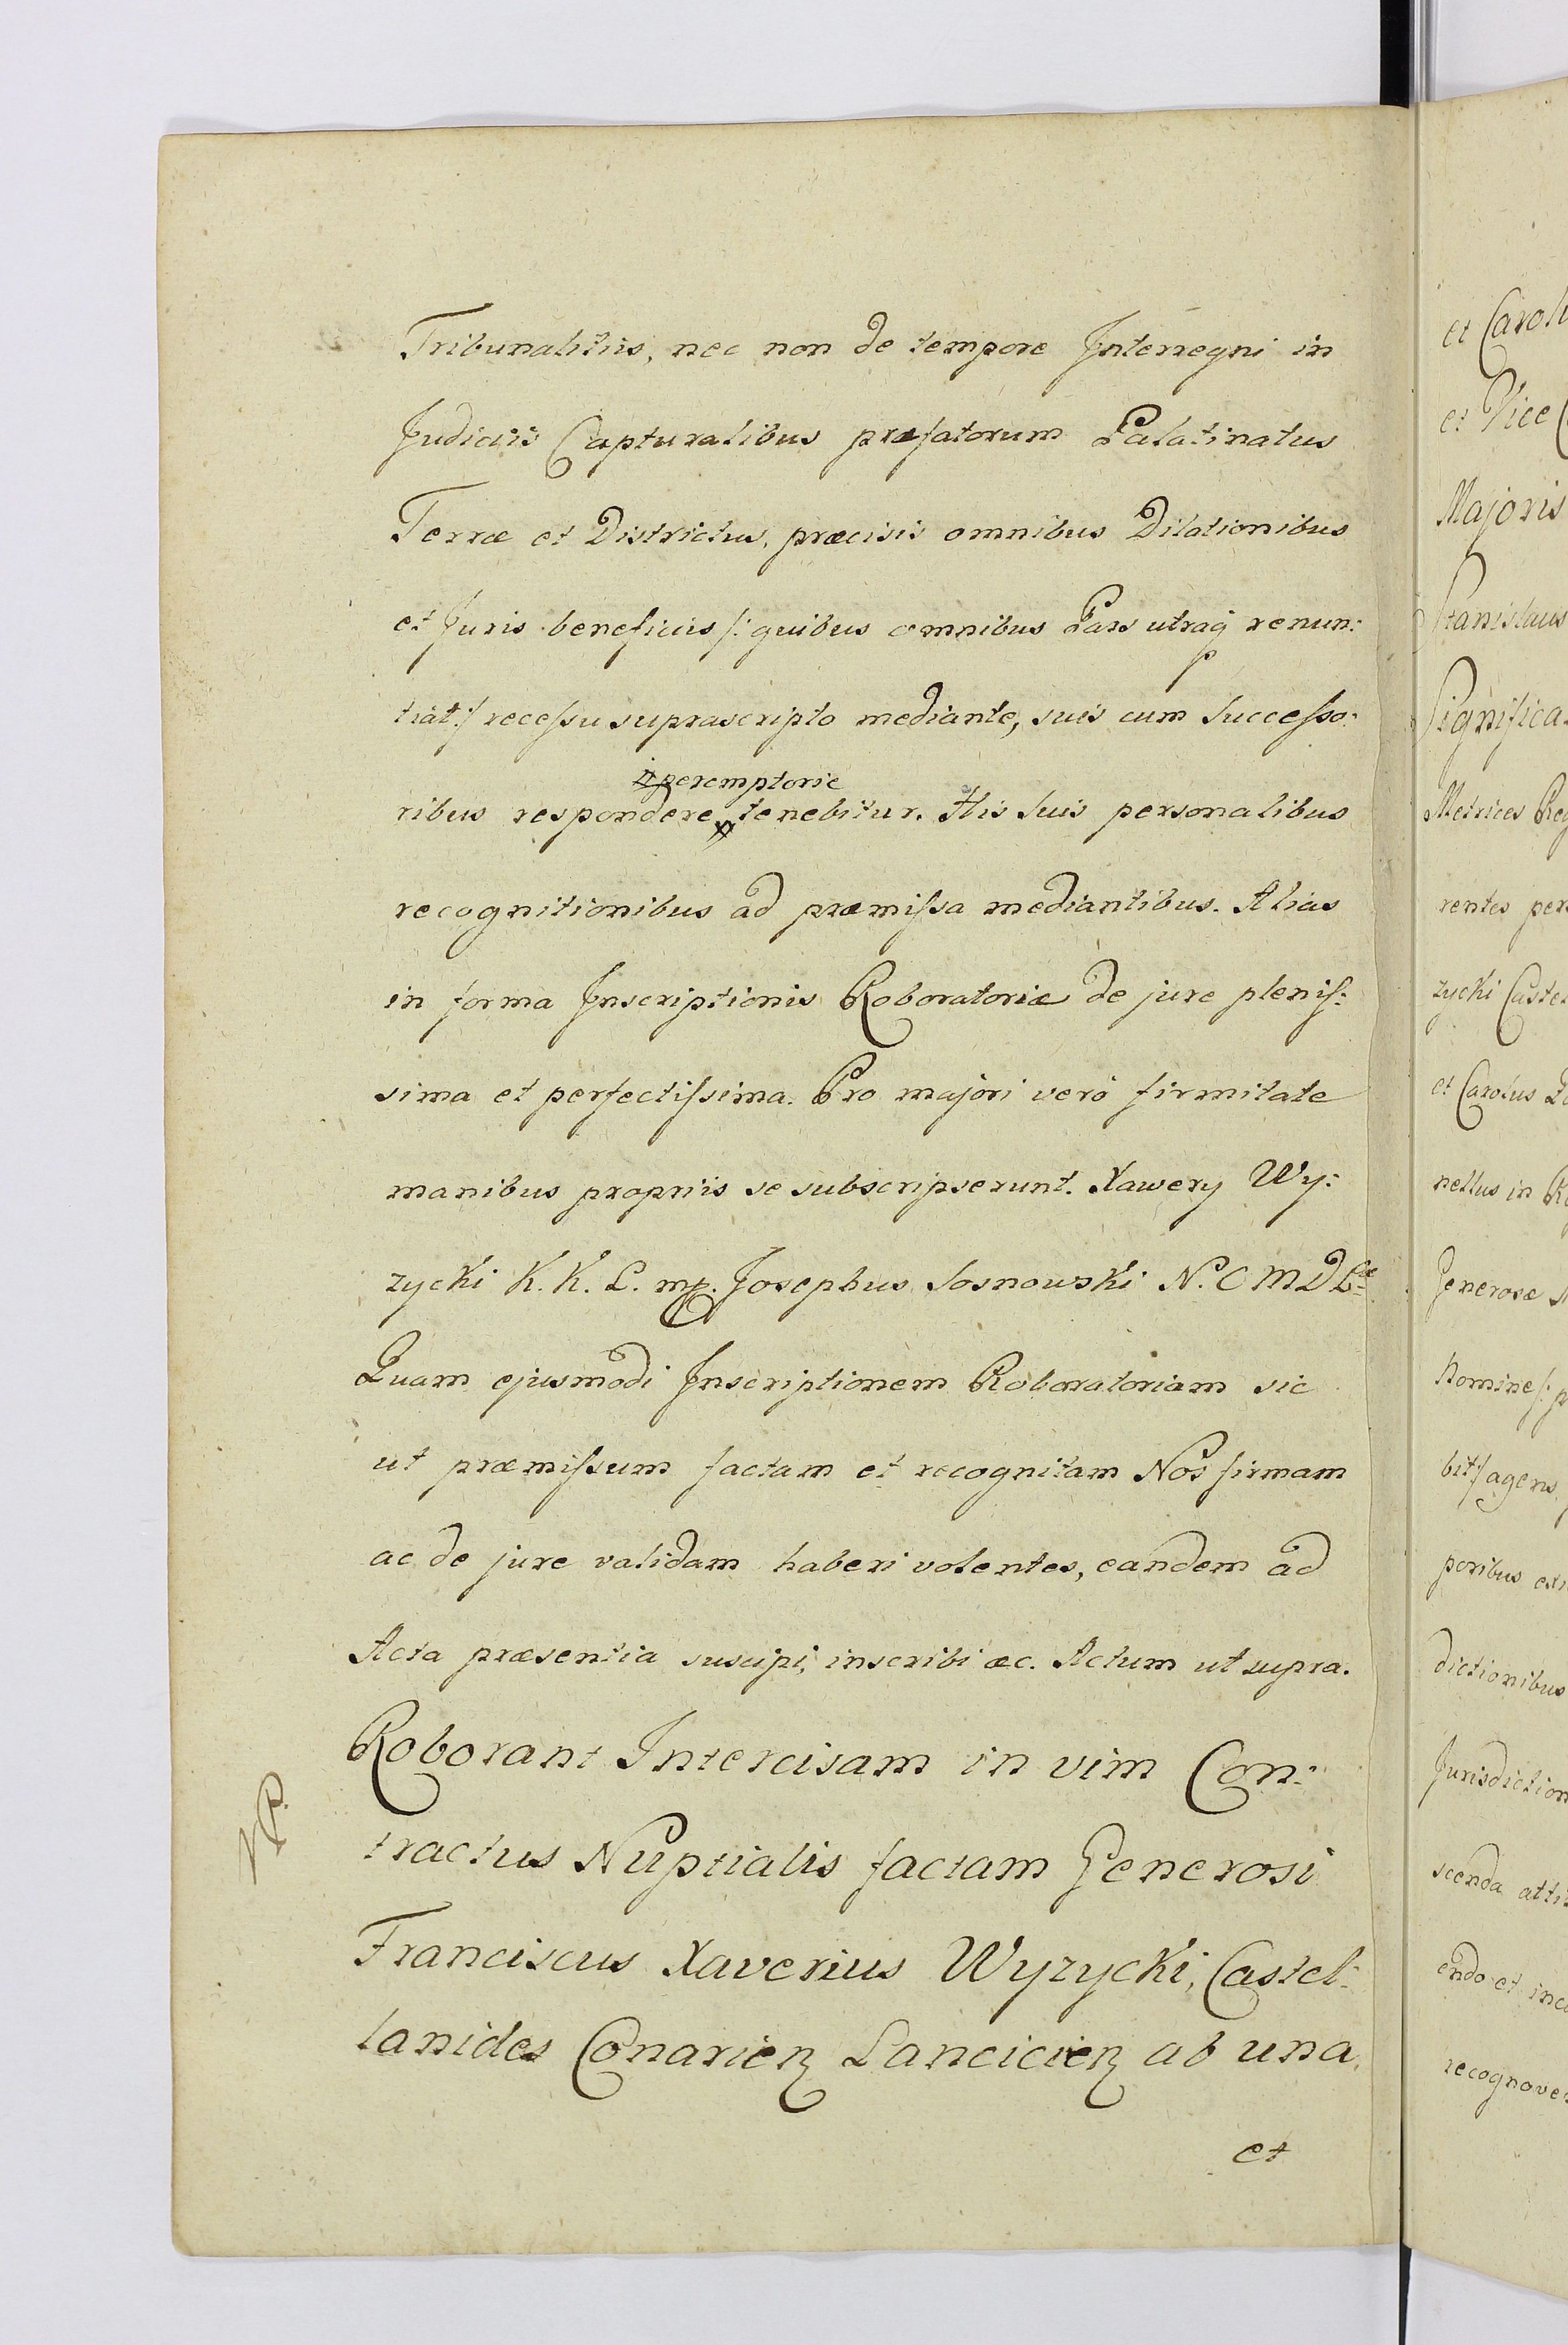 Tribunalitiis, nec non de tempore Interregni in
Judiciis Capturalibus præfatorum Palatinatus
Terræ et Districtus, præcisis omnibus Dilationibus
et Juris beneficiis /: quibus omnibus Pars utraq renun:
tiat :/ recessu suprascripto mediante, suis cum Successo:
peremptorie
ribus respondere tenebitur. His Suis personalibus
recognitionibus ad præmissa mediantibus. Alias
in forma Inscriptionis Roboratoriæ de jure plenis:
sima et perfectissima. Pro majori verò firmitate
manibus propriis se subscripserunt. Xawery Wy:
zycki K. K. L. mp. Josephus Sosnowski N. C M D L
Quam ejusmodi Inscriptionem Roboratoriam sic
ut præmissum factam et recognitam Nos firmam
ac de jure validam haberi volentes, eandem ad
Acta præsentia suscipi, inscribi &c. Actum ut supra.
Roborant Intercisam in vim Con:
tractus Nuptialis factam Generosi
Franciscus Xaverius Wyzycki, Castel:
lanides Conarien Lancicien ab una
et
et Caroli
et Vice
Majoris
Stanislaus
Significa
Metrices Reg
rentes per
zycki Castel
et Carolus
nellus in
Generosæ
Nomine /: p
bit :/ agens
poribus
dictionibus
Jurisdiction
scenda
endo et
recognove